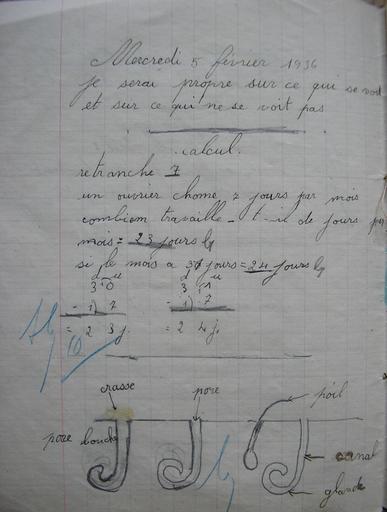 Mercredi 5 février 1936
je serai propre sur ce qui se voit
et sur ce qui ne se voit pas
calcul.
retranche 7
un ouvrier chome 7 jours par mois
combien travaille-t-il de jours par
mois = 23 jours
si le mois a 31 jours = 24 jours
d u
3 0
- 1) 7
= 2 3 j.
d u
3 1
- 1) 7
= 2 4 j.
10
crasse
pore
poil
pore bouché
canal
glande